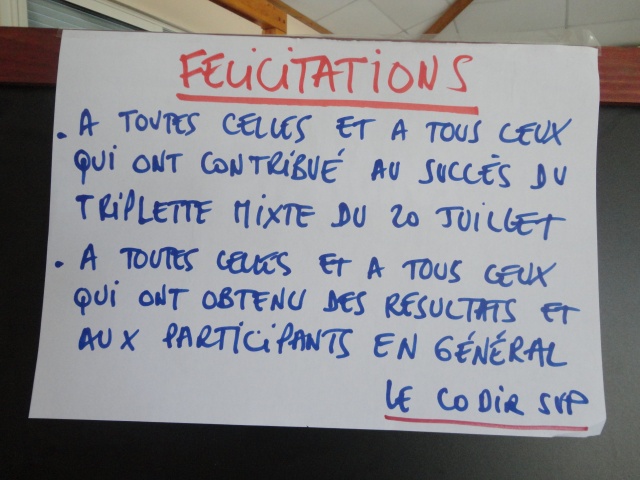 FELICITATIONS
. A TOUTES CELLES ET A TOUS CEUX
QUI ONT CONTRIBUÉ AU SUCCÈS DU
TRIPLETTE MIXTE DU 20 JUILLET
. A TOUTES CELLES ET A TOUS CEUX
QUI ONT OBTENU DES RESULTATS ET
AUX PARTICIPANTS EN GÉNÉRAL
LE CODIR SVP